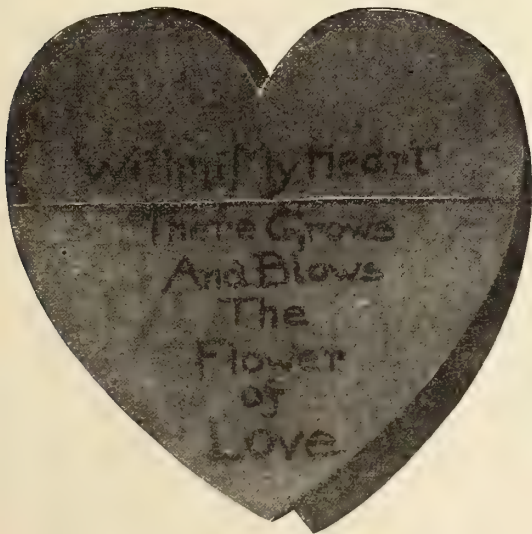 Within My Heart
There Grows
And Blows
The
Flower
of
Love